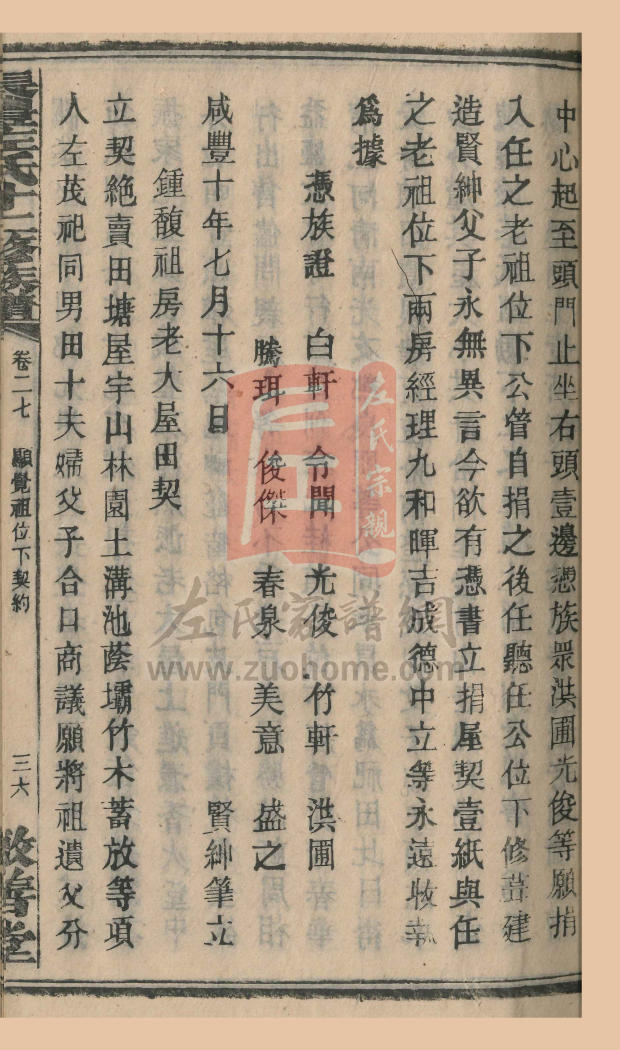 中心起至頭門止坐右頭壹邊憑族眾洪圃光俊等願捐
入任之老祖位下公管自捐之後任聽任公位下修葺建
造賢紳父子永無異言今欲有憑書立捐屋契壹紙與任
之老祖位下兩房經理九和暉吉成德中立等永遠收執
爲據
憑族證 白軒 令聞 光俊 竹軒 洪圃
騰珥 俊傑 春泉 美意 盛之
咸豐十年七月十六日 賢紳筆立
鍾馥祖房老大屋田契
立契絶賣田塘屋宇山林園土溝池蔭壩竹木蓄放等項
人左茂祀同男田十夫婦父子合口商議願將祖遺父分
左氏十二修族譜 卷二七 顯覺祖位下契約 三六 敦善堂
左氏宗親
左氏家譜網
www.zuohome.com